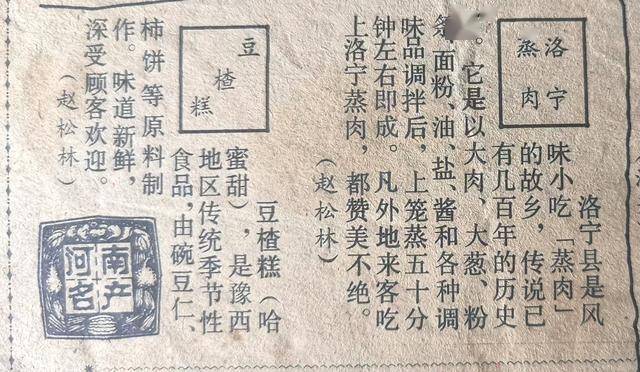 洛宁
蒸肉
洛宁县是风
味小吃「蒸肉」
的故乡，传说已
有几百年的历史
。它是以大肉、大葱、粉
、面粉、油、盐、酱和各种调
味品调拌后，上笼蒸五十分
钟左右即成。凡外地来客吃
上洛宁蒸肉，都赞美不绝。
（赵松林）
豆楂糕
豆楂糕（哈
蜜甜），是豫西
地区传统季节性
食品，由碗豆仁、
柿饼等原料制
作。味道新鲜，
深受顾客欢迎。
（赵松林）
河南
名产